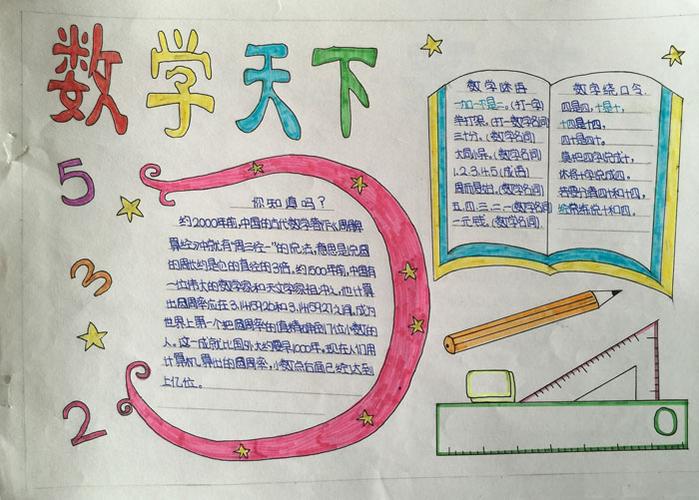 数学天下
5
3
2
你知道吗?
约2000年前,中国的古代数学著作《周髀
算经》中就有“周三径一”的说法,意思是说圆
的周长约是它的直径的3倍。约1500年前,中国有
一位伟大的数学家和天文学家祖冲之。他计算
出圆周率应在3.1415926和3.1415927之间,成为
世界上第一个把圆周率的值精确到7位小数的
人。这一成就比国外大约要早1000年。现在人们用
计算机算出的圆周率,小数点后面已经达到
上亿位。
数学谜语
一加一不是二。(打一字)
举打狠。(打一数学名词)
三十分。(数学名词)
大同小异。(数学名词)
1.2.3.4.5(成语)
周而复始。(数学名词)
五.四.三.二.一(数学名词)
一元钱。(数学名词)
数学绕口令.
四是四,十是十,
十四是十四,
四十是四十。
莫把四字说成十,
休将十字说成四。
若要分清四和十四,
经常练说十和四。
0